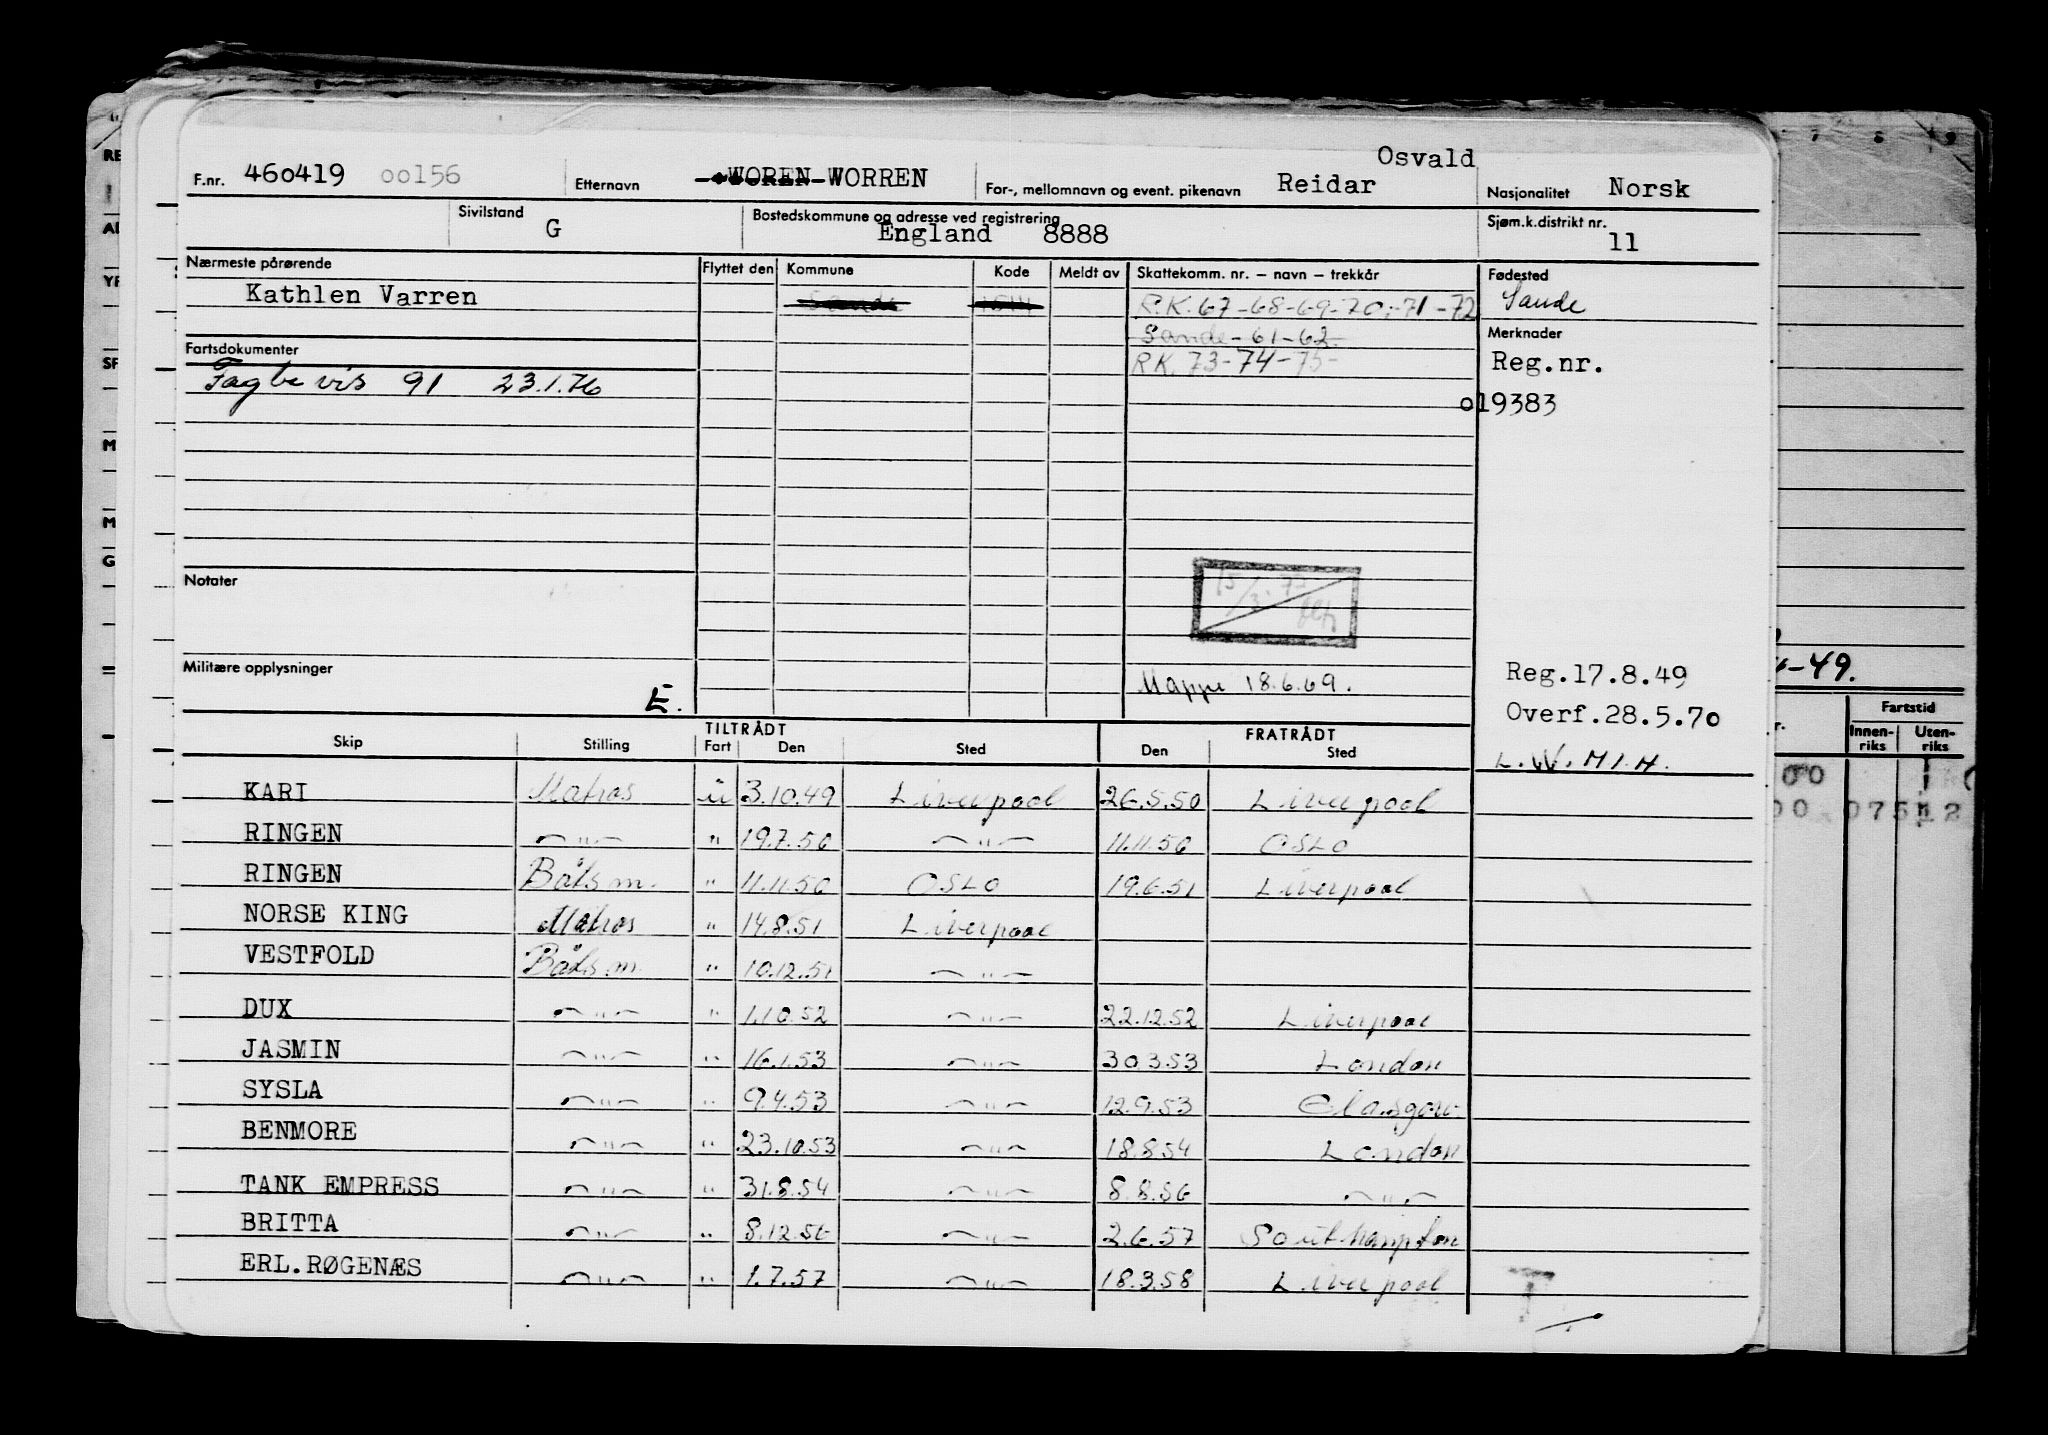 Osvald
F.nr. 460419 00156 Etternavn WOREN WORREN For-, mellomnavn og event. pikenavn Reidar Nasjonalitet Norsk
Sivilstand G Bostedskommune og adresse ved registrering England 8888 Sjøm.k.distrikt nr. 11
Nærmeste pårørende Flyttet den Kommune Kode Meldt av Skattekomm. nr. – navn – trekkår Fødested
Kathlen Varren Sande R.K. 67-68-69-70-71-72 Sande
Sande-61-62 Merknader
Fartsdokumenter RK. 73-74-75- Reg.nr.
Fagbevis 91 23.1.76 019383
Notater
Militære opplysninger E. Mappe 18.6.69. Reg.17.8.49
Overf.28.5.70
TILTRÅDT FRATRÅDT
Skip Stilling Fart Den Sted Den Sted L.W. M.H.
KARI Matros u 3.10.49 Liverpool 26.5.50 Liverpool
RINGEN —"— " 19.7.50 —"— 11.11.50 OSLO
RINGEN Båtsm. " 11.11.50 OSLO 19.6.51 Liverpool
NORSE KING Matros " 14.8.51 Liverpool
VESTFOLD Båtsm. " 10.12.51 —"—
DUX —"— " 1.10.52 —"— 22.12.52 Liverpool
JASMIN —"— " 16.1.53 —"— 30.3.53 London
SYSLA —"— " 9.4.53 —"— 12.9.53 Glasgow
BENMORE —"— " 23.10.53 —"— 18.8.54 London
TANK EMPRESS —"— " 31.8.54 —"— 8.8.56 —"—
BRITTA —"— " 8.12.56 —"— 2.6.57 Southampton
ERL.RØGENÆS —"— " 1.7.57 —"— 18.3.58 Liverpool
7 8 9
-49.
Fartstid
Innen-riks Uten-riks